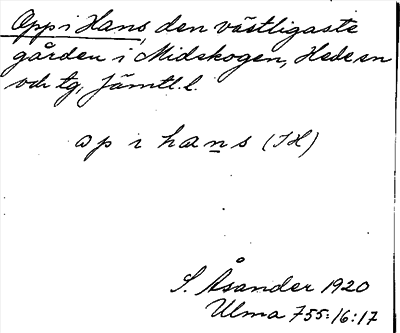 Opp i Hans, den västligaste
gården i Midskogen, Hede sn
och tg, Jämtl. l.
ap i hans (IH)
S. Åsander 1920
Ulma 755:16:17